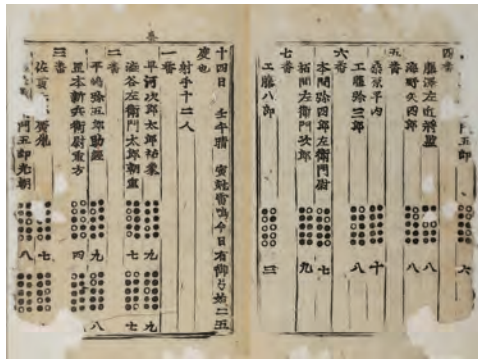 門五郎 六
四番
藤澤左近將監 八
海野矢四郎 八
五番
桑原平内 十
工藤弥三郎 八
六番
本間弥四郎左衛門尉 七
柘間左衛門次郎 九
七番
工藤八郎 三
十四日 壬午晴 寅尅雷鳴今日有御弓始二五
度也
射手十二人
一番
早河次郎太郎祐泰 九 九
澁谷左衛門太郎朝重 七 七
二番
平嶋弥五郎助經 九 八
本新兵衛尉重方 四
三番
佐 七
門五郎光朝 八